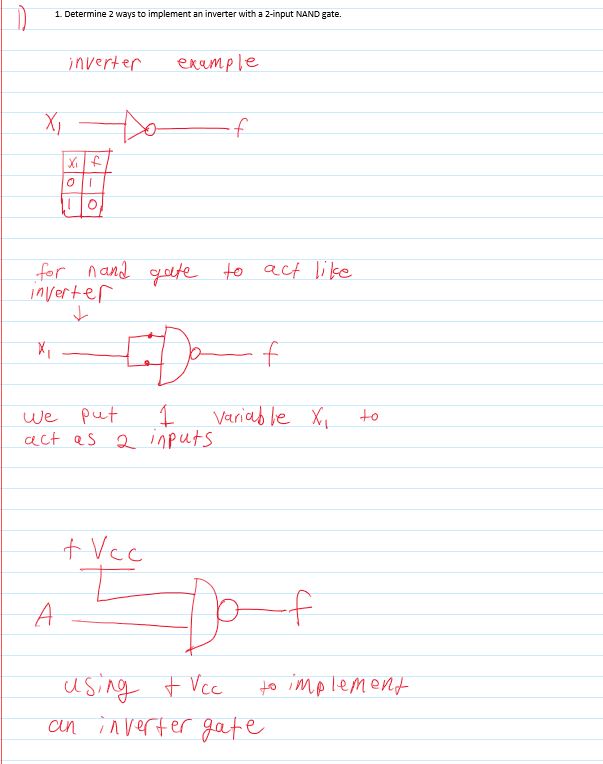 1)
1. Determine 2 ways to implement an inverter with a 2-input NAND gate.
inverter example
X₁ f
X₁ f
0 1
1 0
for nand gate to act like
inverter
↓
X₁ f
we put 1 variable X₁ to
act as 2 inputs
+ Vcc
A f
using + Vcc to implement
an inverter gate